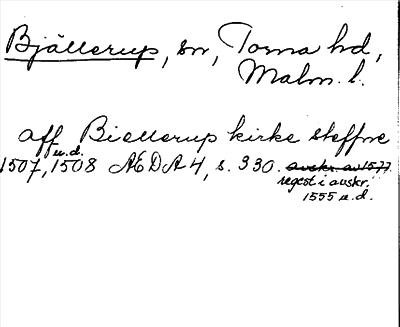 Bjällerup, sn, Torna hd,
Malm. l.
aff Biellerup kirke steffne
u.d.
1507, 1508 ÆDA 4, s. 330. avskr. av 1577
regest i avskr.
1555 u.d.